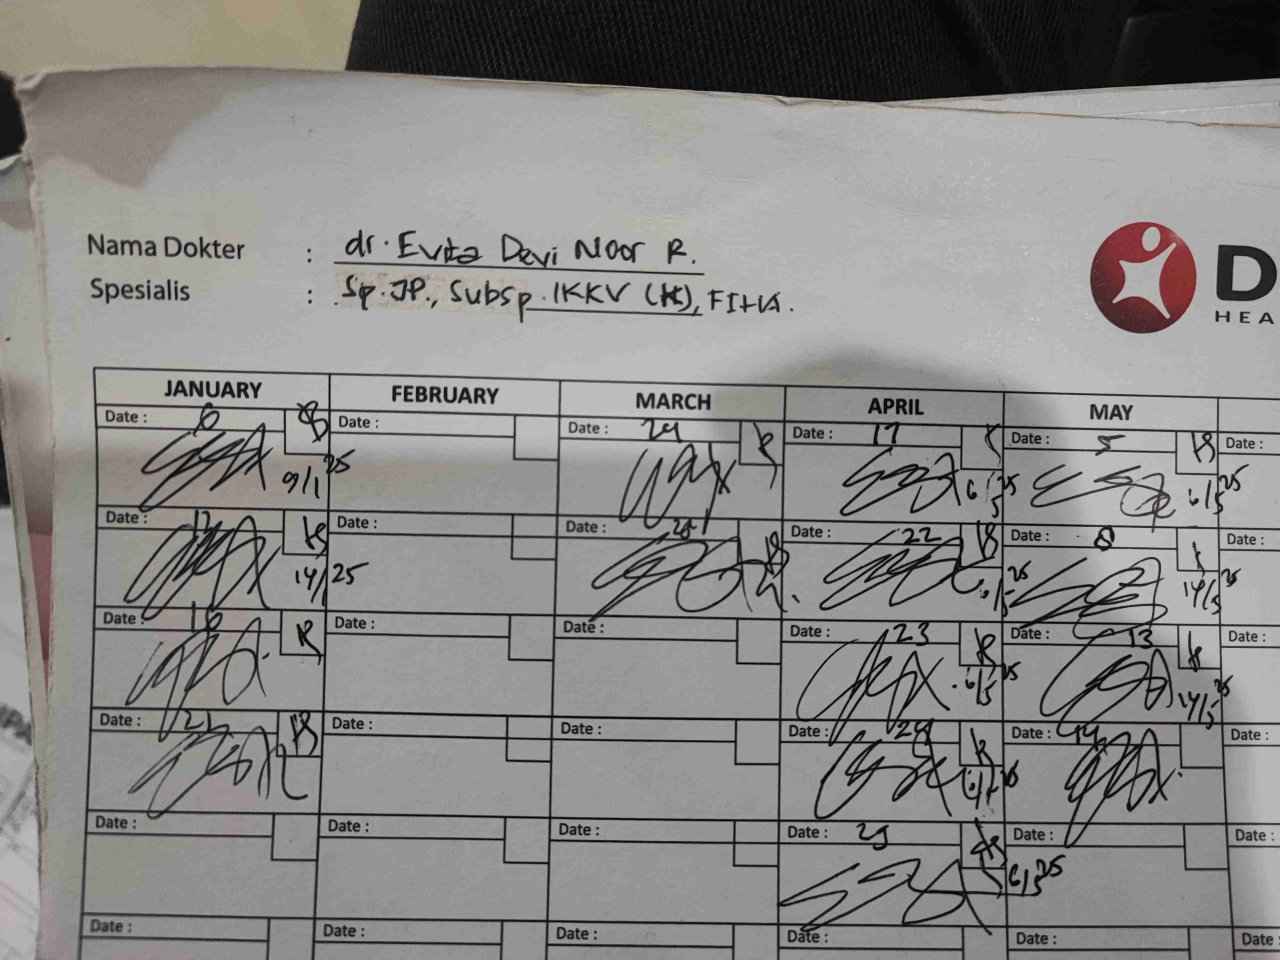 Nama Dokter : dr. Evita Devi Noor R.
Spesialis : Sp.JP., Subsp.IKKV (K), FIHA.
D
HEA
JANUARY FEBRUARY MARCH APRIL MAY
Date : 6 Date : Date : 24 Date : 17 Date : 5 Date :
9/1 25 6/5 25 6/5 25
Date : Date : Date : Date : 22 Date : 8 Date :
14/1 25 6/5 25 14/5 25
Date : 16 Date : Date : Date : 23 Date : 13 Date :
6/5 25 14/5 25
Date : Date : Date : Date : Date : 14 Date :
Date : Date : Date : Date : Date : Date :
6/5 25
Date : Date : Date : Date : Date : Date :